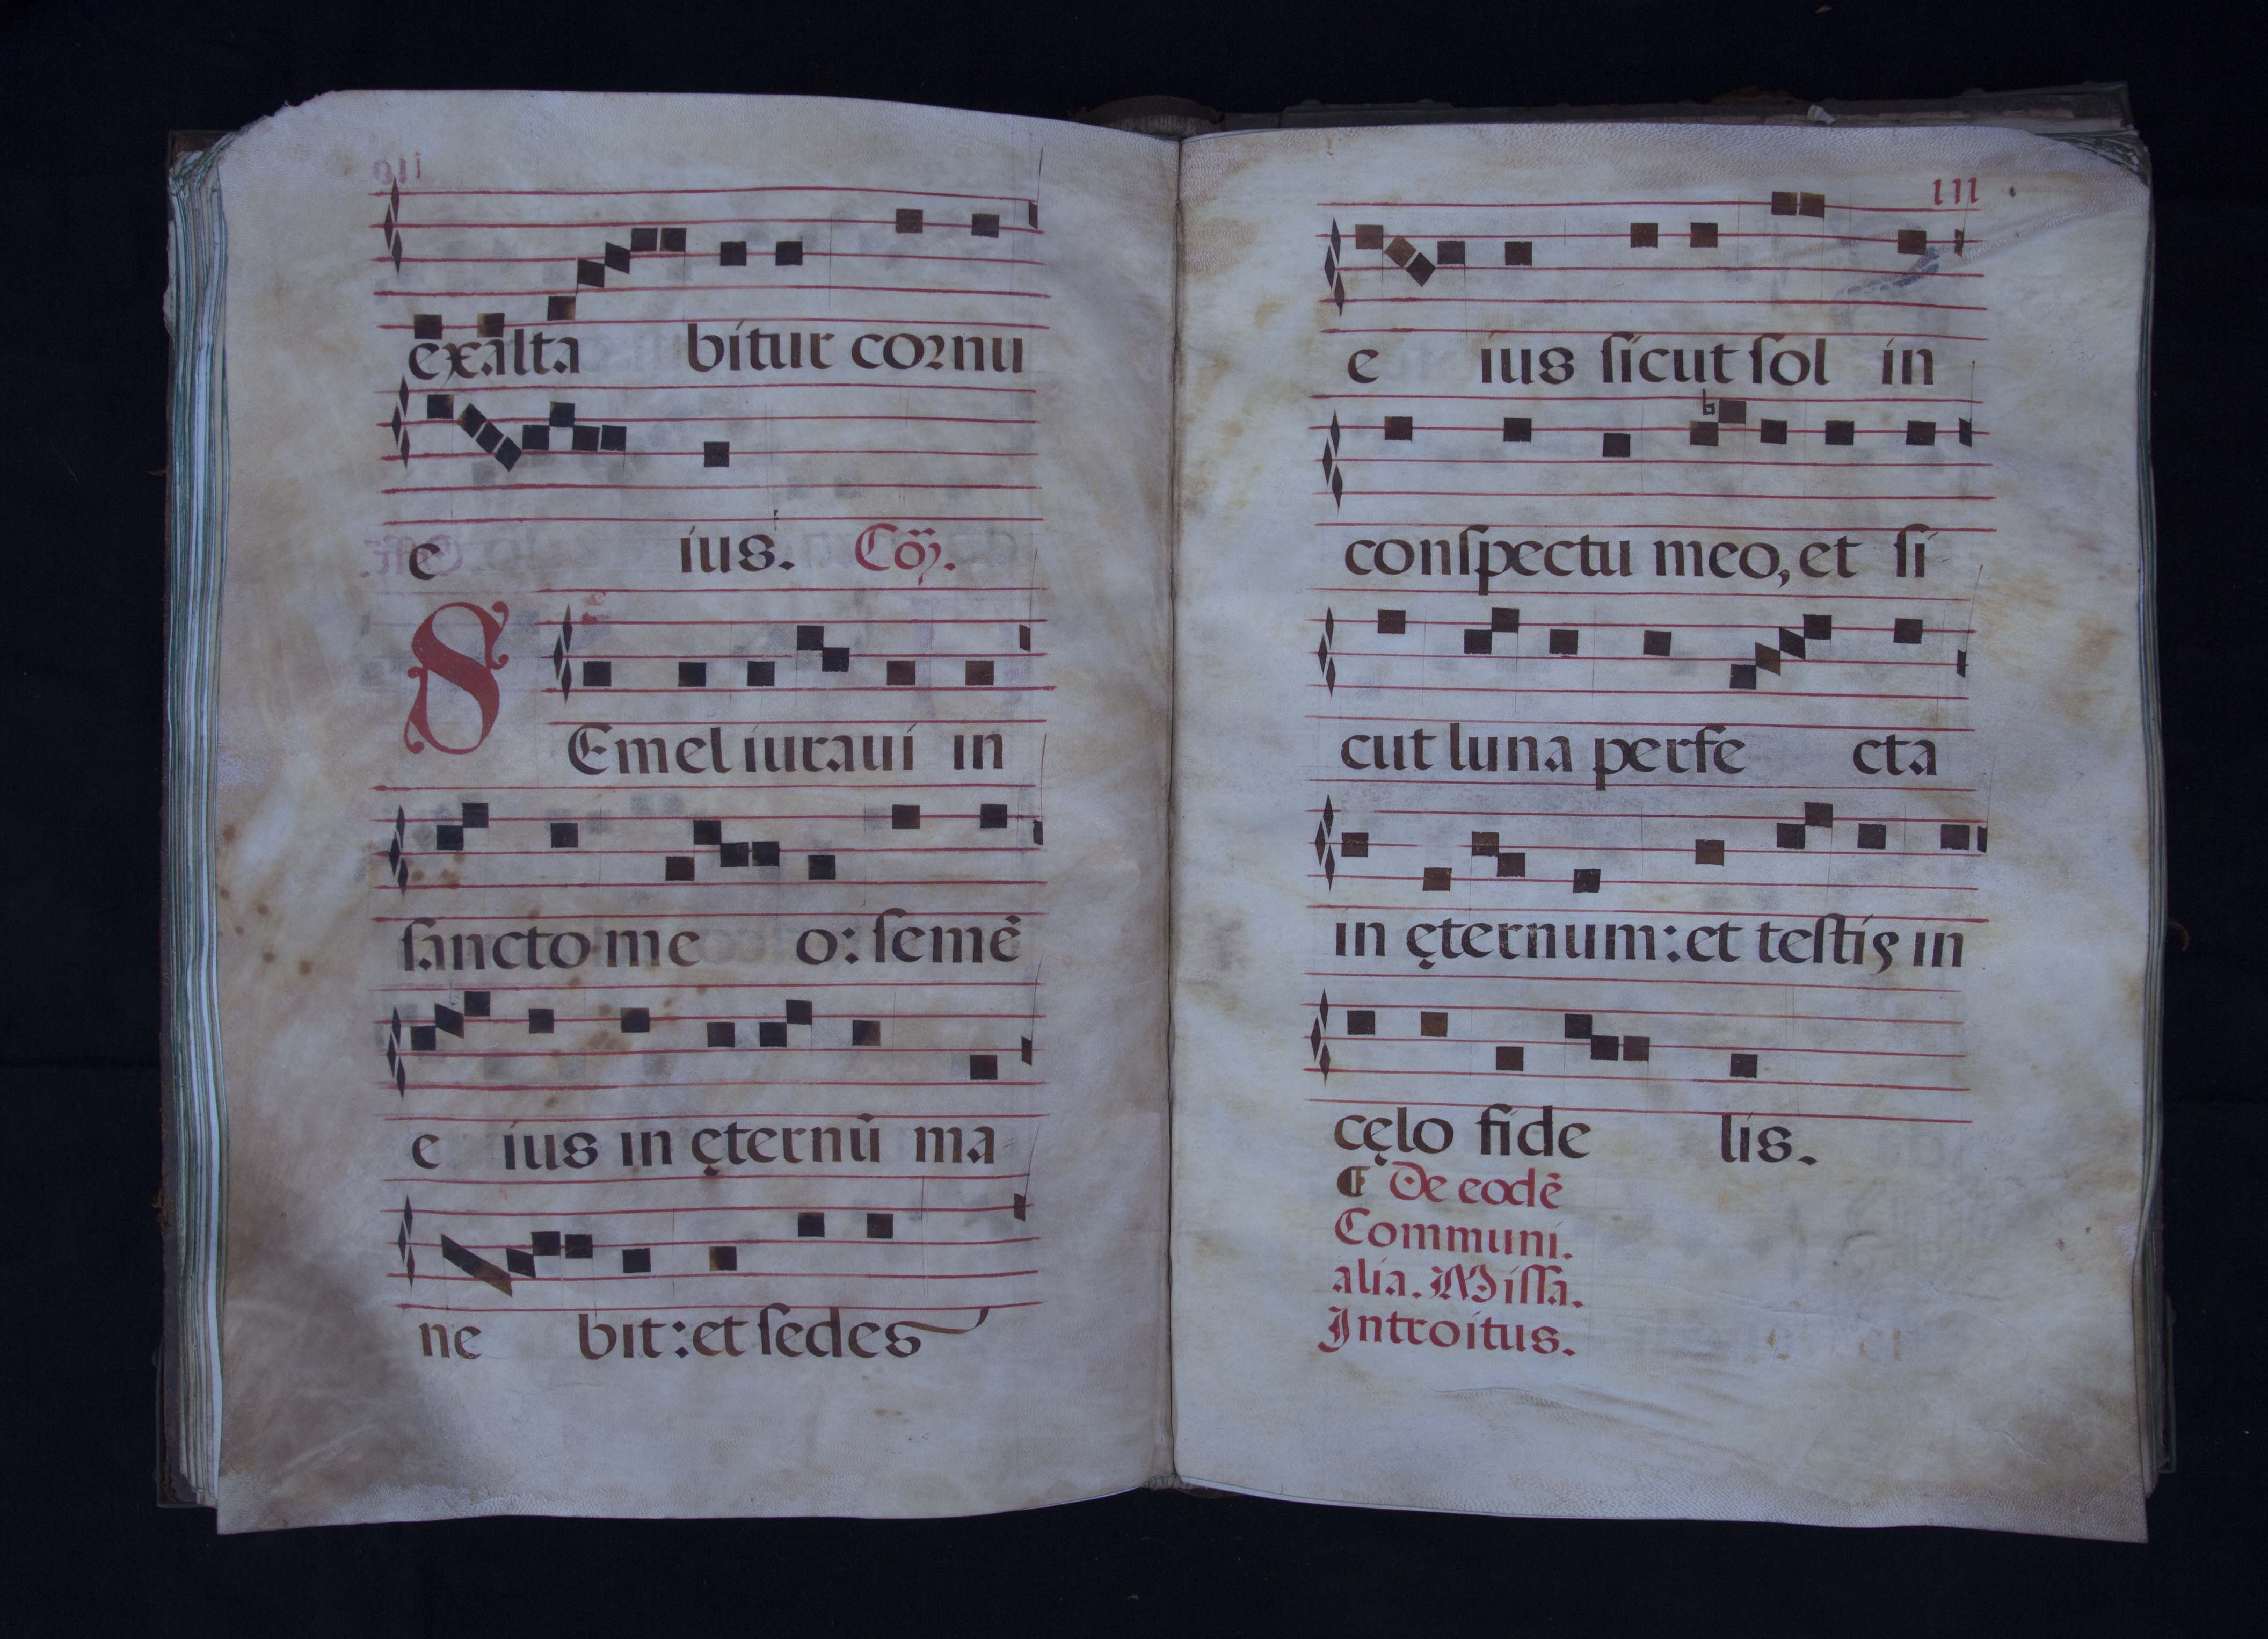 110
exalta bitur cornu
e ius. Cõ.
SEmel iuraui in
sancto me o: semẽ
e ius in ęternũ ma
ne bit: et sedes
111
e ius sicut sol in
conspectu meo, et si
cut luna perfe cta
in ęternum: et testis in
cęlo fide lis.
¶ De eodẽ
Communi.
alia. Missa.
Introitus.